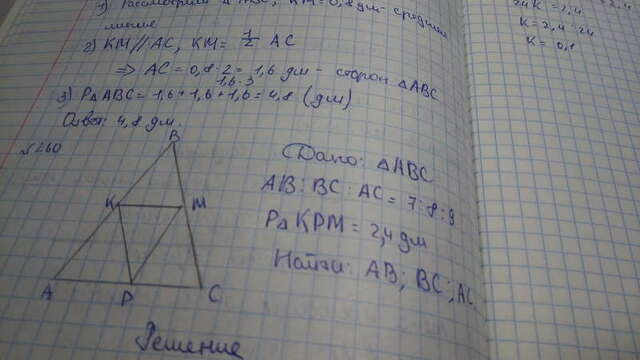 1) Рассмотрим △ABC, KM = 0,8 дм - средняя
линия
2) KM // AC, KM = 1/2 AC
⇒ AC = 0,8 · 2 = 1,6 дм - сторон △ABC
1,6 · 3
3) P△ABC = 1,6 + 1,6 + 1,6 = 4,8 (дм)
Ответ: 4,8 дм.
24K = 2,4
K = 2,4 : 24
K = 0,1
№260
B
K
M
A
P
C
Дано: △ABC
AB : BC : AC = 7 : 8 : 9
P△ KPM = 2,4 дм
Найти: AB; BC; AC
Решение